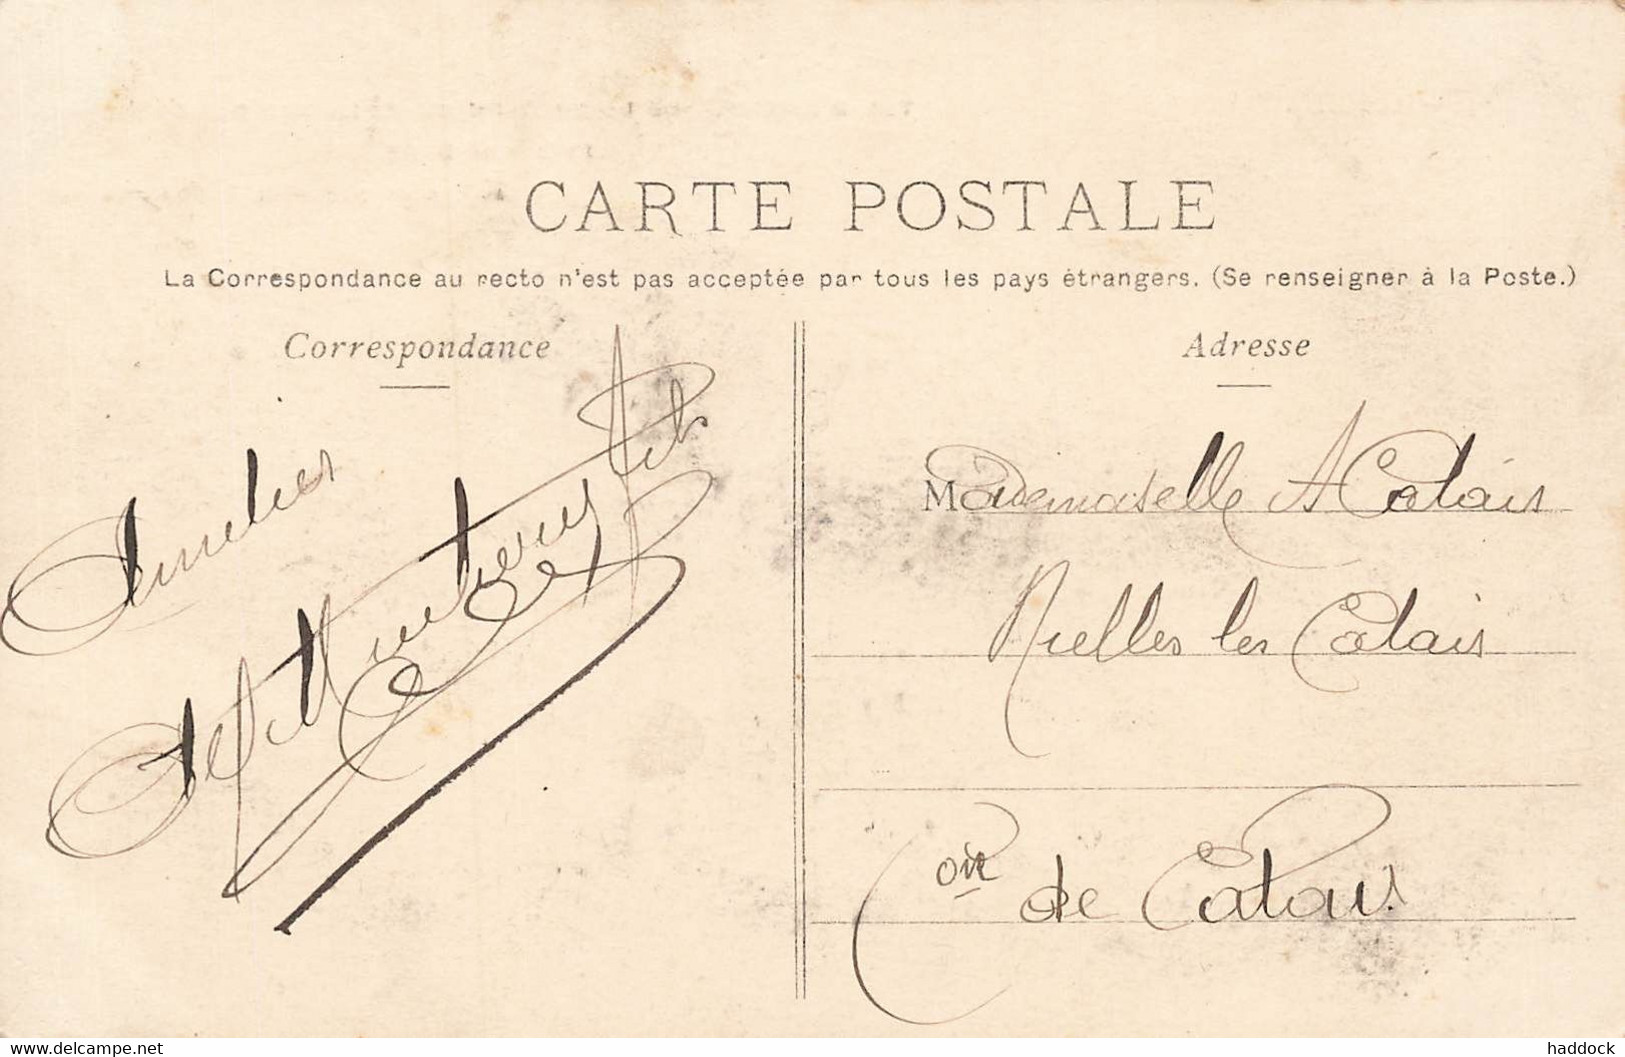 CARTE POSTALE
La Correspondance au recto n'est pas acceptée par tous les pays étrangers. (Se renseigner à la Poste.)
Correspondance
Amelies
Adresse
Mademoiselle A Calais
Nielles les Calais
Con de Calais
www.delcampe.net
haddock